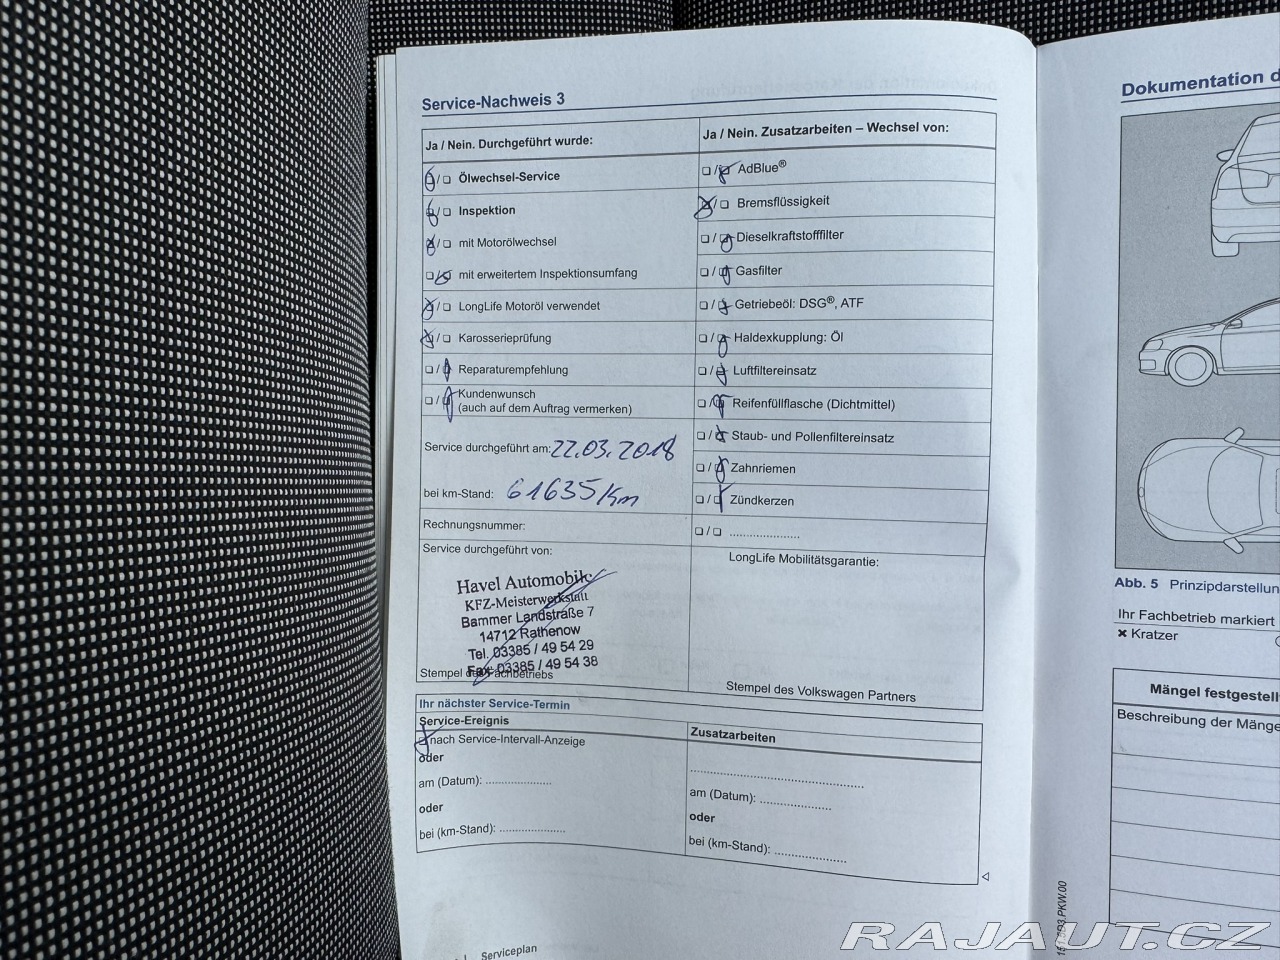 Service-Nachweis 3
Ja / Nein. Durchgeführt wurde:
Ölwechsel-Service
Inspektion
mit Motorölwechsel
mit erweitertem Inspektionsumfang
LongLife Motoröl verwendet
Karosserieprüfung
Reparaturempfehlung
Kundenwunsch
(auch auf dem Auftrag vermerken)
Service durchgeführt am: 22.03.2018
bei km-Stand: 61635 km
Rechnungsnummer:
Service durchgeführt von:
Havel Automobile
KFZ-Meisterwerkstatt
Bammer Landstraße 7
14712 Rathenow
Tel. 03385 / 49 54 29
Fax 03385 / 49 54 38
Stempel des Fachbetriebs
Ja / Nein. Zusatzarbeiten – Wechsel von:
AdBlue®
Bremsflüssigkeit
Dieselkraftstofffilter
Gasfilter
Getriebeöl: DSG®, ATF
Haldexkupplung: Öl
Luftfiltereinsatz
Reifenfüllflasche (Dichtmittel)
Staub- und Pollenfiltereinsatz
Zahnriemen
Zündkerzen
LongLife Mobilitätsgarantie:
Stempel des Volkswagen Partners
Ihr nächster Service-Termin
Service-Ereignis
nach Service-Intervall-Anzeige
oder
am (Datum):
oder
bei (km-Stand):
Zusatzarbeiten
am (Datum):
oder
bei (km-Stand):
Serviceplan
Dokumentation d
Abb. 5 Prinzipdarstellun
Ihr Fachbetrieb markiert
× Kratzer
Mängel festgestell
Beschreibung der Mänge
RAJAUT.CZ